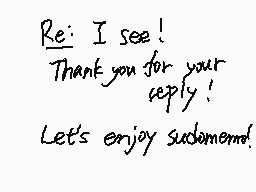 Re: I see!
Thank you for your
reply!
Let's enjoy sudomemo!